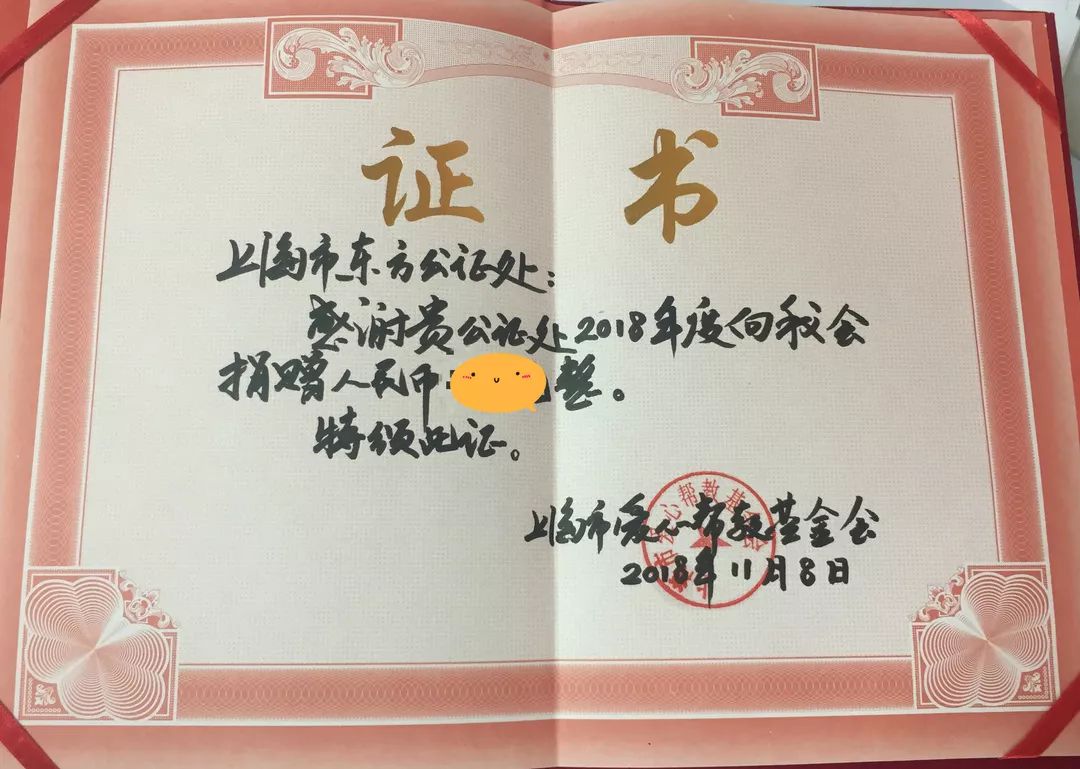 证书
上海市东方公证处：
感谢贵公证处2018年度向我会
捐赠人民币整。
特颁此证。
上海市爱心帮教基金会
2018年11月8日